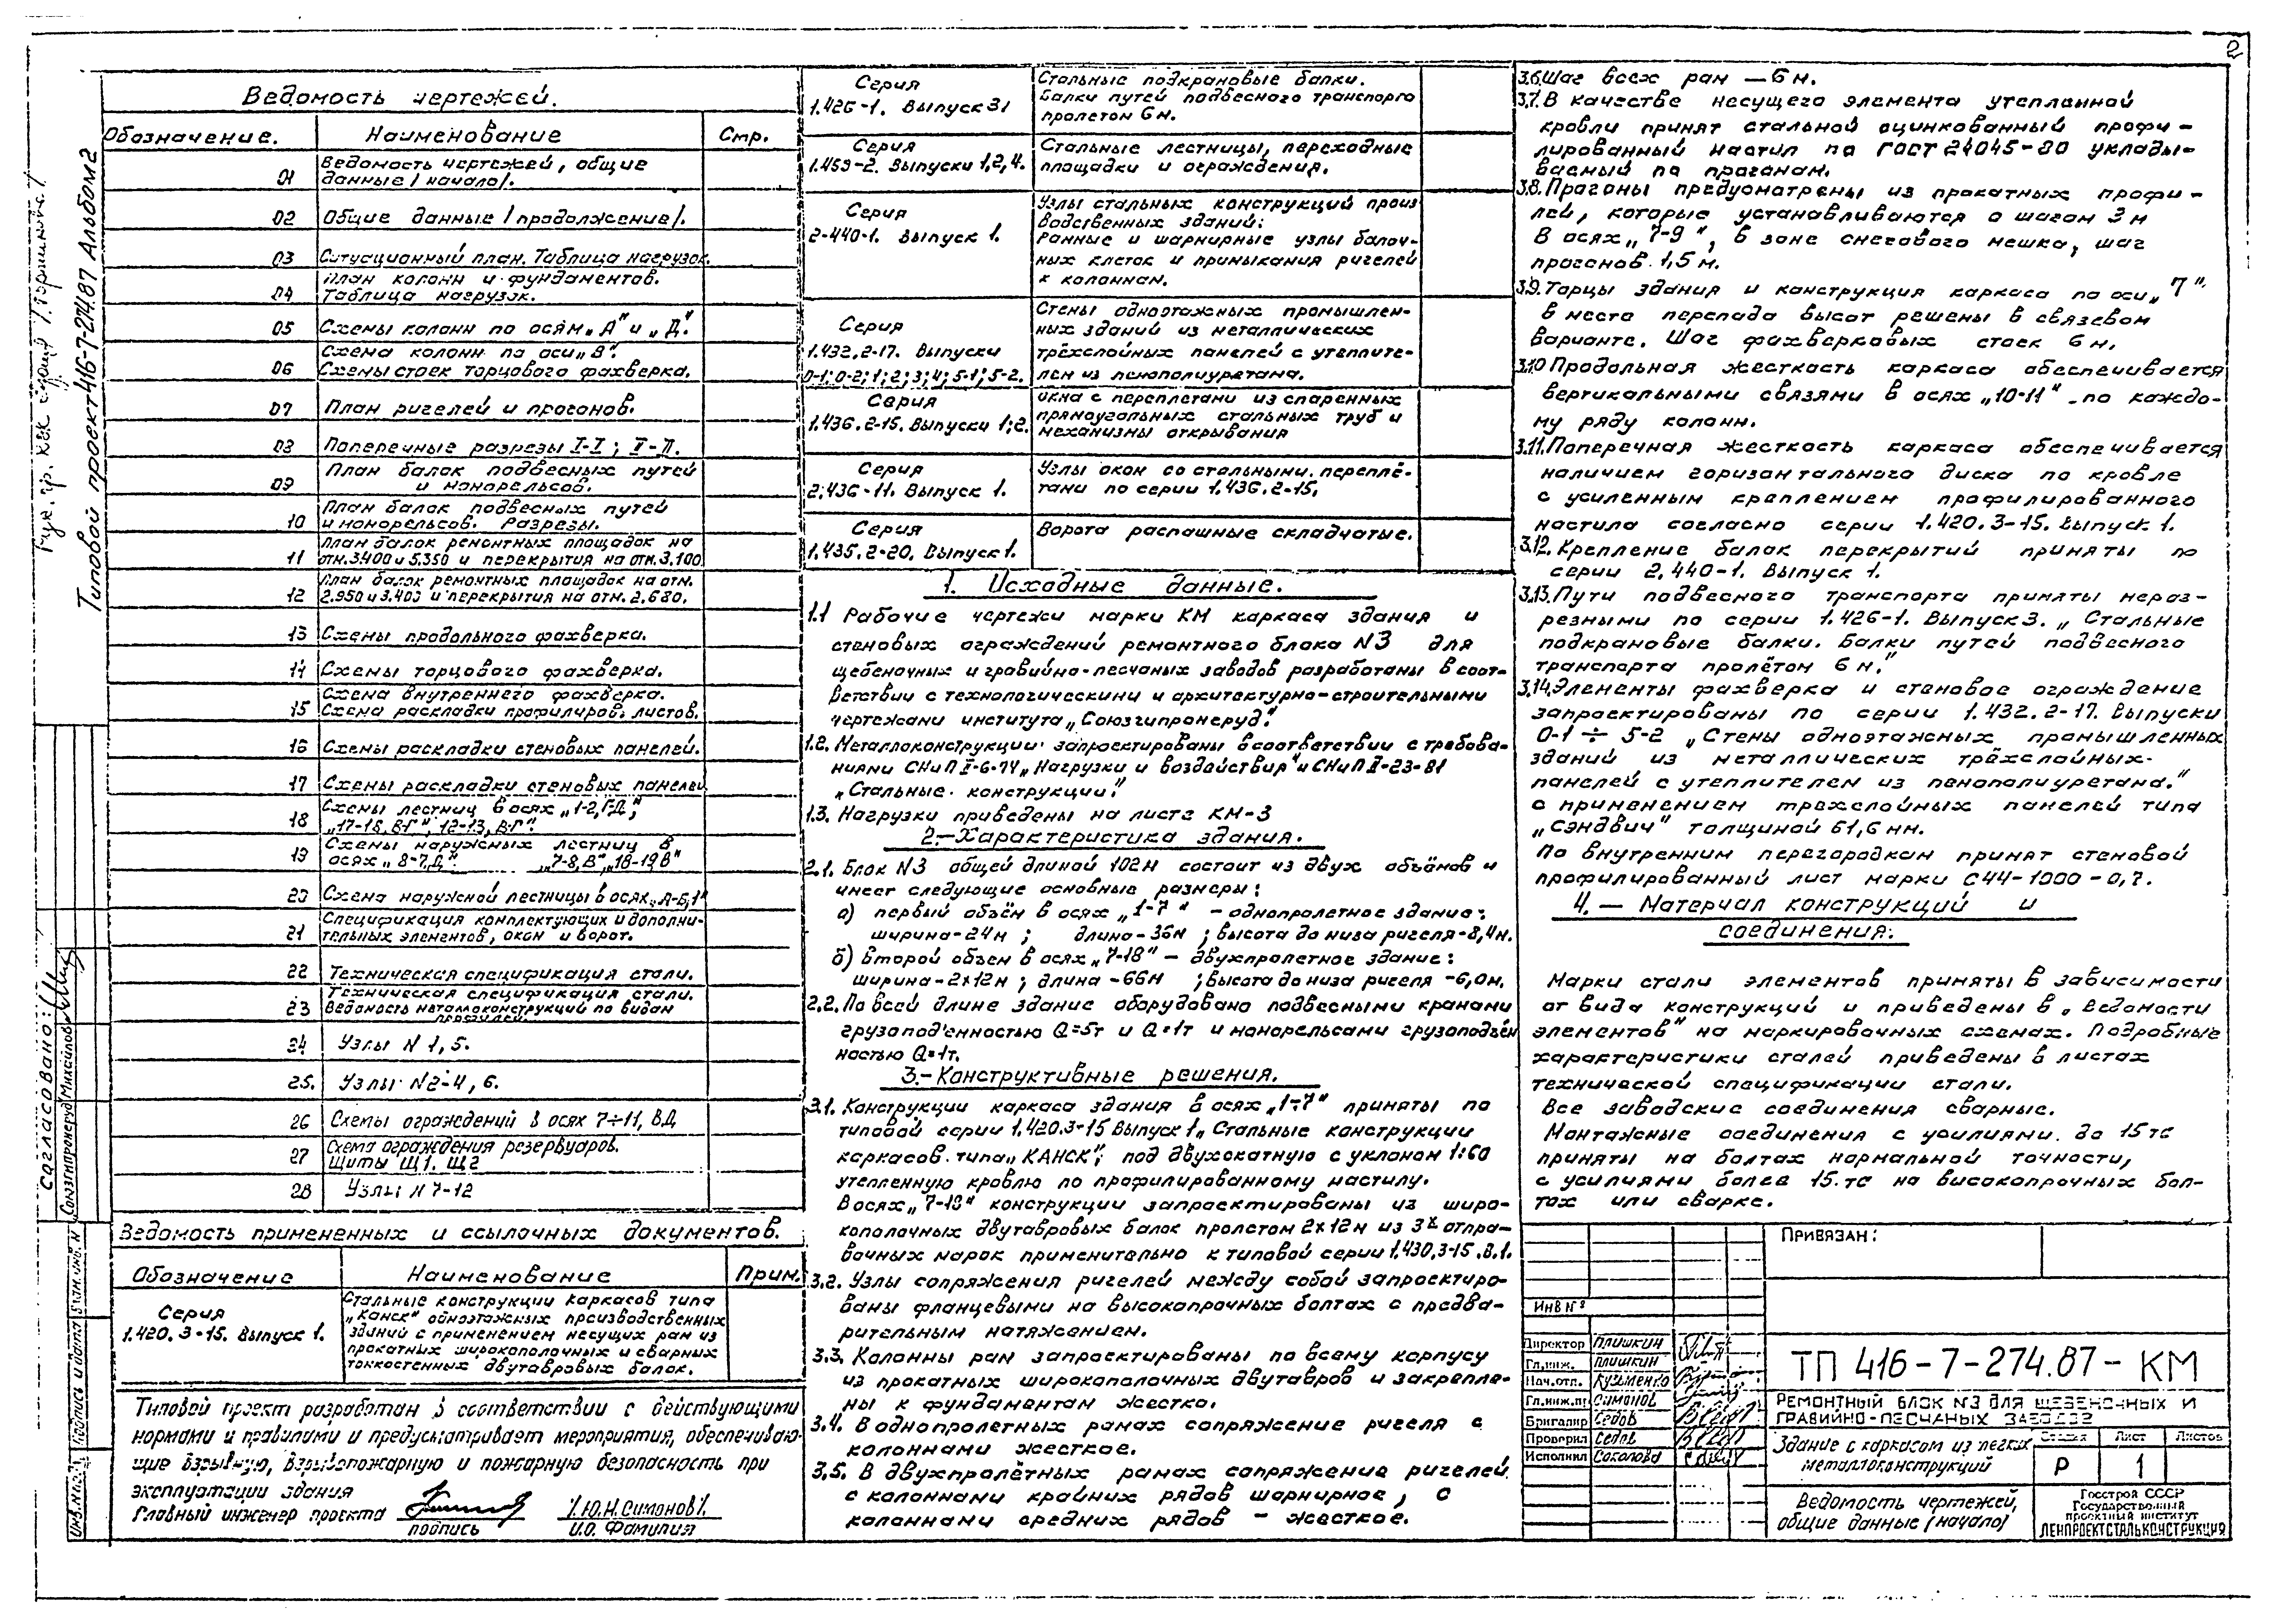 2
Типовой проект 416-7-274.87 Альбом 2
Ведомость чертежей.
Обозначение. Наименование Стр.
01 Ведомость чертежей, общие
данные /начало/.
02 Общие данные /продолжение/.
03 Ситуационный план. Таблица нагрузок.
04 План колонн и фундаментов.
Таблица нагрузок.
05 Схемы колонн по осям „А" и „Д".
06 Схема колонн по оси „В".
Схемы стоек торцового фахверка.
07 План ригелей и прогонов.
08 Поперечные разрезы I-I; II-II.
09 План балок подвесных путей
и монорельсов.
10 План балок подвесных путей
и монорельсов. Разрезы.
11 План балок ремонтных площадок на
отм. 3.400 и 5.350 и перекрытия на отм. 3.100
12 План балок ремонтных площадок на отм.
2.950 и 3.400 и перекрытия на отм. 2.680.
13 Схемы продольного фахверка.
14 Схемы торцового фахверка.
15 Схема внутреннего фахверка.
Схема раскладки профилиров. листов.
16 Схемы раскладки стеновых панелей.
17 Схемы раскладки стеновых панелей
18 Схемы лестниц в осях „1-2, Г-Д",
„17-18, В-Г", 12-13, В-Г".
19 Схемы наружных лестниц в
осях „ 8-7, Д". „7-8, В", „18-19 В"
20 Схема наружной лестницы в осях „А-Б, 1"
21 Спецификация комплектующих и дополни-
тельных элементов, окон и ворот.
22 Техническая спецификация стали.
23 Техническая спецификация стали.
Ведомость металлоконструкций по видам
профилей
24 Узлы N 1, 5.
25. Узлы N2÷4, 6.
26 Схемы ограждений в осях 7÷11, В,Д
27 Схема ограждения резервуаров.
Щиты Щ1. Щ2
28 Узлы N 7-12
Ведомость примененных и ссылочных документов.
Обозначение Наименование Прим.
Серия
1.420.3-15. Выпуск 1.
Стальные конструкции каркасов типа
„Канск" одноэтажных производственных
зданий с применением несущих рам из
прокатных широкополочных и сварных
тонкостенных двутавровых балок.
Типовой проект разработан в соответствии с действующими
нормами и правилами и предусматривает мероприятия, обеспечиваю-
щие взрывную, взрывопожарную и пожарную безопасность при
эксплуатации здания
Главный инженер проекта /Ю.Н. Симонов/.
подпись И.О. Фамилия
Серия
1.426-1. Выпуск 3/
Стальные подкрановые балки.
Балки путей подвесного транспорта
пролетом 6м.
Серия
1.459-2. Выпуски 1,2,4.
Стальные лестницы, переходные
площадки и ограждения.
Серия
2-440-1. Выпуск 1.
Узлы стальных конструкций произ
водственных зданий:
Рамные и шарнирные узлы балоч-
ных клеток и примыкания ригелей
к колоннам.
Серия
1.432.2-17. Выпуски
0-1; 0-2; 1; 2; 3; 4; 5-1; 5-2.
Стены одноэтажных промышлен-
ных зданий из металлических
трёхслойных панелей с утеплите-
лем из пенополиуретана.
Серия
1.436.2-15. Выпуски 1; 2.
Окна с переплетами из спаренных
прямоугольных стальных труб и
механизмы открывания
Серия
2.436-11. Выпуск 1.
Узлы окон со стальными переплё-
тами по серии 1.436.2-15.
Серия
1.435.2-20. Выпуск 1.
Ворота распашные складчатые.
1. Исходные данные.
1.1 Рабочие чертежи марки КМ каркаса здания и
стеновых ограждений ремонтного блока N3 для
щебеночных и гравийно-песчаных заводов разработаны в соот-
ветствии с технологическими и архитектурно-строительными
чертежами института „Союзгипронеруд".
1.2. Металлоконструкции запроектированы в соответствии с требова-
ниями СНиП II-6-74 „Нагрузки и воздействия" и СНиП II-23-81
„Стальные конструкции".
1.3. Нагрузки приведены на листе КМ-3
2.-Характеристика здания.
2.1. Блок N3 общей длиной 102м состоит из двух объёмов и
имеет следующие основные размеры:
а) первый объём в осях „1-7" - однопролетное здание:
ширина-24м; длина-36м; высота до низа ригеля-8,4м.
б) Второй объем в осях „7-18" - двухпролетное здание:
ширина-2х12м; длина-66м; высота до низа ригеля -6,0м.
2.2. По всей длине здание оборудовано подвесными кранами
грузоподъемностью Q=5т и Q=1т и монорельсами грузоподъём
ностью Q=1т.
3.-Конструктивные решения.
3.1. Конструкции каркаса здания в осях „1÷7" приняты по
типовой серии 1.420.3-15 Выпуск 1 „Стальные конструкции
каркасов типа „КАНСК"; под двухскатную с уклоном 1:60
утепленную кровлю по профилированному настилу.
В осях „7-18" конструкции запроектированы из широ-
кополочных двутавровых балок пролетом 2х12м из 3х отпра-
вочных марок применительно к типовой серии 1.430.3-15. В.1.
3.2. Узлы сопряжения ригелей между собой запроектиро-
ваны фланцевыми на высокопрочных болтах с предва-
рительным натяжением.
3.3. Колонны рам запроектированы по всему корпусу
из прокатных широкополочных двутавров и закрепле-
ны к фундаментам жестко.
3.4. В однопролетных рамах сопряжение ригеля с
колоннами жесткое.
3.5. В двухпролётных рамах сопряжение ригелей
с колоннами крайних рядов шарнирное, с
колоннами средних рядов - жесткое.
3.6. Шаг всех рам — 6м.
3.7. В качестве несущего элемента утепленной
кровли принят стальной оцинкованный профи-
лированный настил по ГОСТ 24045-80 уклады-
ваемый по прогонам.
3.8. Прогоны предусмотрены из прокатных профи-
лей, которые устанавливаются с шагом 3м
В осях „7-9", в зоне снегового мешка, шаг
прогонов 1,5м.
3.9. Торцы здания и конструкция каркаса по оси „7"
в месте перепада высот решены в связевом
варианте. Шаг фахверковых стоек 6м.
3.10 Продольная жесткость каркаса обеспечивается
вертикальными связями в осях „10-11" - по каждо-
му ряду колонн.
3.11. Поперечная жесткость каркаса обеспечивается
наличием горизонтального диска по кровле
с усиленным креплением профилированного
настила согласно серии 1.420.3-15. Выпуск 1.
3.12. Крепление балок перекрытий приняты по
серии 2.440-1. Выпуск 1.
3.13. Пути подвесного транспорта приняты нераз-
резными по серии 1.426-1. Выпуск 3. „Стальные
подкрановые балки. Балки путей подвесного
транспорта пролётом 6м."
3.14. Элементы фахверка и стеновое ограждение
запроектированы по серии 1.432.2-17. Выпуски
0-1 ÷ 5-2 „Стены одноэтажных промышленных
зданий из металлических трёхслойных
панелей с утеплителем из пенополиуретана."
с применением трехслойных панелей типа
„Сэндвич" толщиной 61,6мм.
По внутренним перегородкам принят стеновой
профилированный лист марки С44-1000-0,7.
4. — Материал конструкций и
соединения.
Марки стали элементов приняты в зависимости
от вида конструкций и приведены в „Ведомости
элементов" на маркировочных схемах. Подробные
характеристики сталей приведены в листах
технической спецификации стали.
Все заводские соединения сварные.
Монтажные соединения с усилиями до 15тс
приняты на болтах нормальной точности,
с усилиями более 15.тс на высокопрочных бол-
тах или сварке.
Привязан:
Инв N°
Директор Плишкин
Гл.инж. Плишкин
Нач.отд. Кузьменко
Гл.инж.пр Симонов
Бригадир Седов
Проверил Седов
Исполнил Соколова
ТП 416-7-274.87-КМ
Ремонтный блок N3 для щебеночных и
гравийно-песчаных заводов
Здание с каркасом из легких
металлоконструкций
Стадия Лист Листов
Р 1
Ведомость чертежей,
общие данные /начало/
Госстрой СССР
Государственный
проектный институт
ЛЕНПРОЕКТСТАЛЬКОНСТРУКЦИЯ
Согласовано:
Союзгипронеруд Михайлов
Взам. инв. N
Подпись и дата
Инв. N подл.